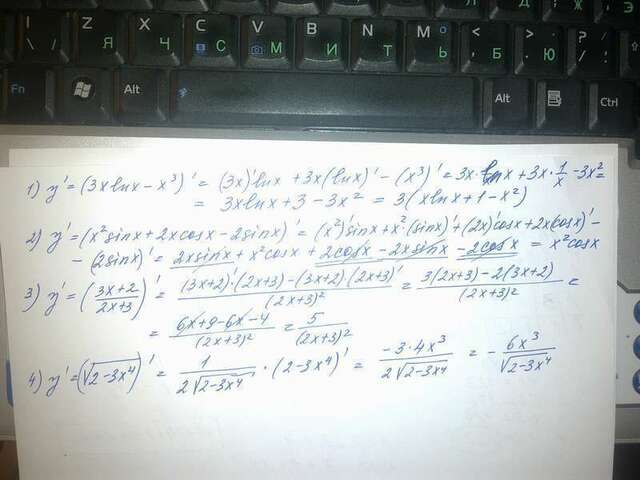 I \ / Z Я X Ч C С V М B И N Т M О Ь < , Б > . Ю ? /
Fn Alt Alt Ctrl
1) y' = (3x ln x − x³)' = (3x)' ln x + 3x (ln x)' − (x³)' = 3x · ln x + 3x · 1/x − 3x² =
= 3x ln x + 3 − 3x² = 3(x ln x + 1 − x²)
2) y' = (x² sin x + 2x cos x − 2 sin x)' = (x²)' sin x + x² · (sin x)' + (2x)' cos x + 2x (cos x)' −
− (2 sin x)' = 2x sin x + x² cos x + 2 cos x − 2x sin x − 2 cos x = x² cos x
3) y' = ((3x+2)/(2x+3))' = ((3x+2)' (2x+3) − (3x+2) (2x+3)')/(2x+3)² = (3(2x+3) − 2(3x+2))/(2x+3)² =
= (6x + 9 − 6x − 4)/(2x+3)² = 5/(2x+3)²
4) y' = (√(2−3x⁴))' = 1/(2√(2−3x⁴)) · (2−3x⁴)' = (−3·4x³)/(2√(2−3x⁴)) = − 6x³/√(2−3x⁴)